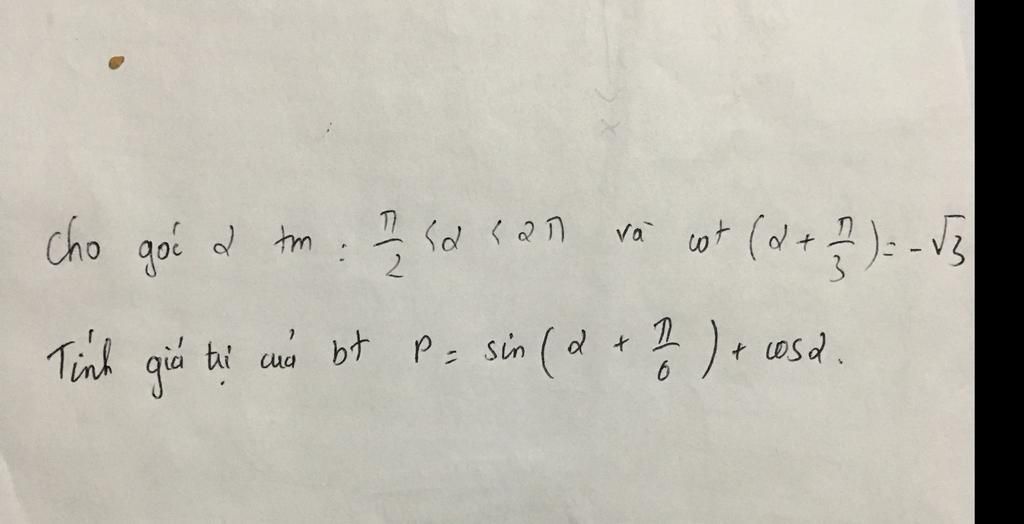 Cho góc α tm : π/2 < α < 2π và cot (α + π/3) = -√3
Tính giá trị của bt P = sin(α + π/6) + cosα.